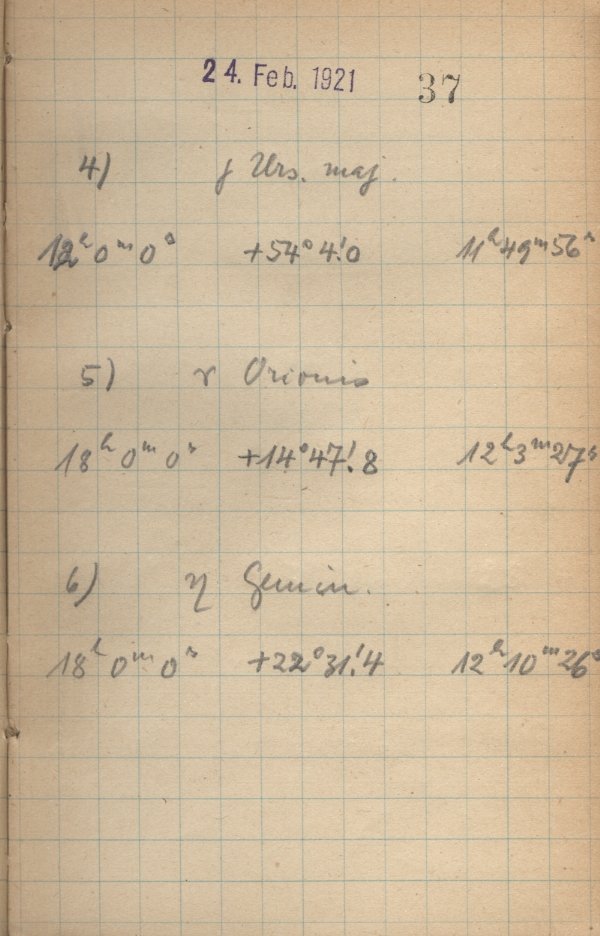 24. Feb. 1921 37
4) γ Urs. maj.
12ʰ0ᵐ0ˢ +54°4!0 11ʰ49ᵐ56ˢ
5) ν Orionis
18ʰ0ᵐ0ˢ +14°47!8 12ʰ3ᵐ27ˢ
6) η Gemin.
18ʰ0ᵐ0ˢ +22°31!4 12ʰ10ᵐ26ˢ